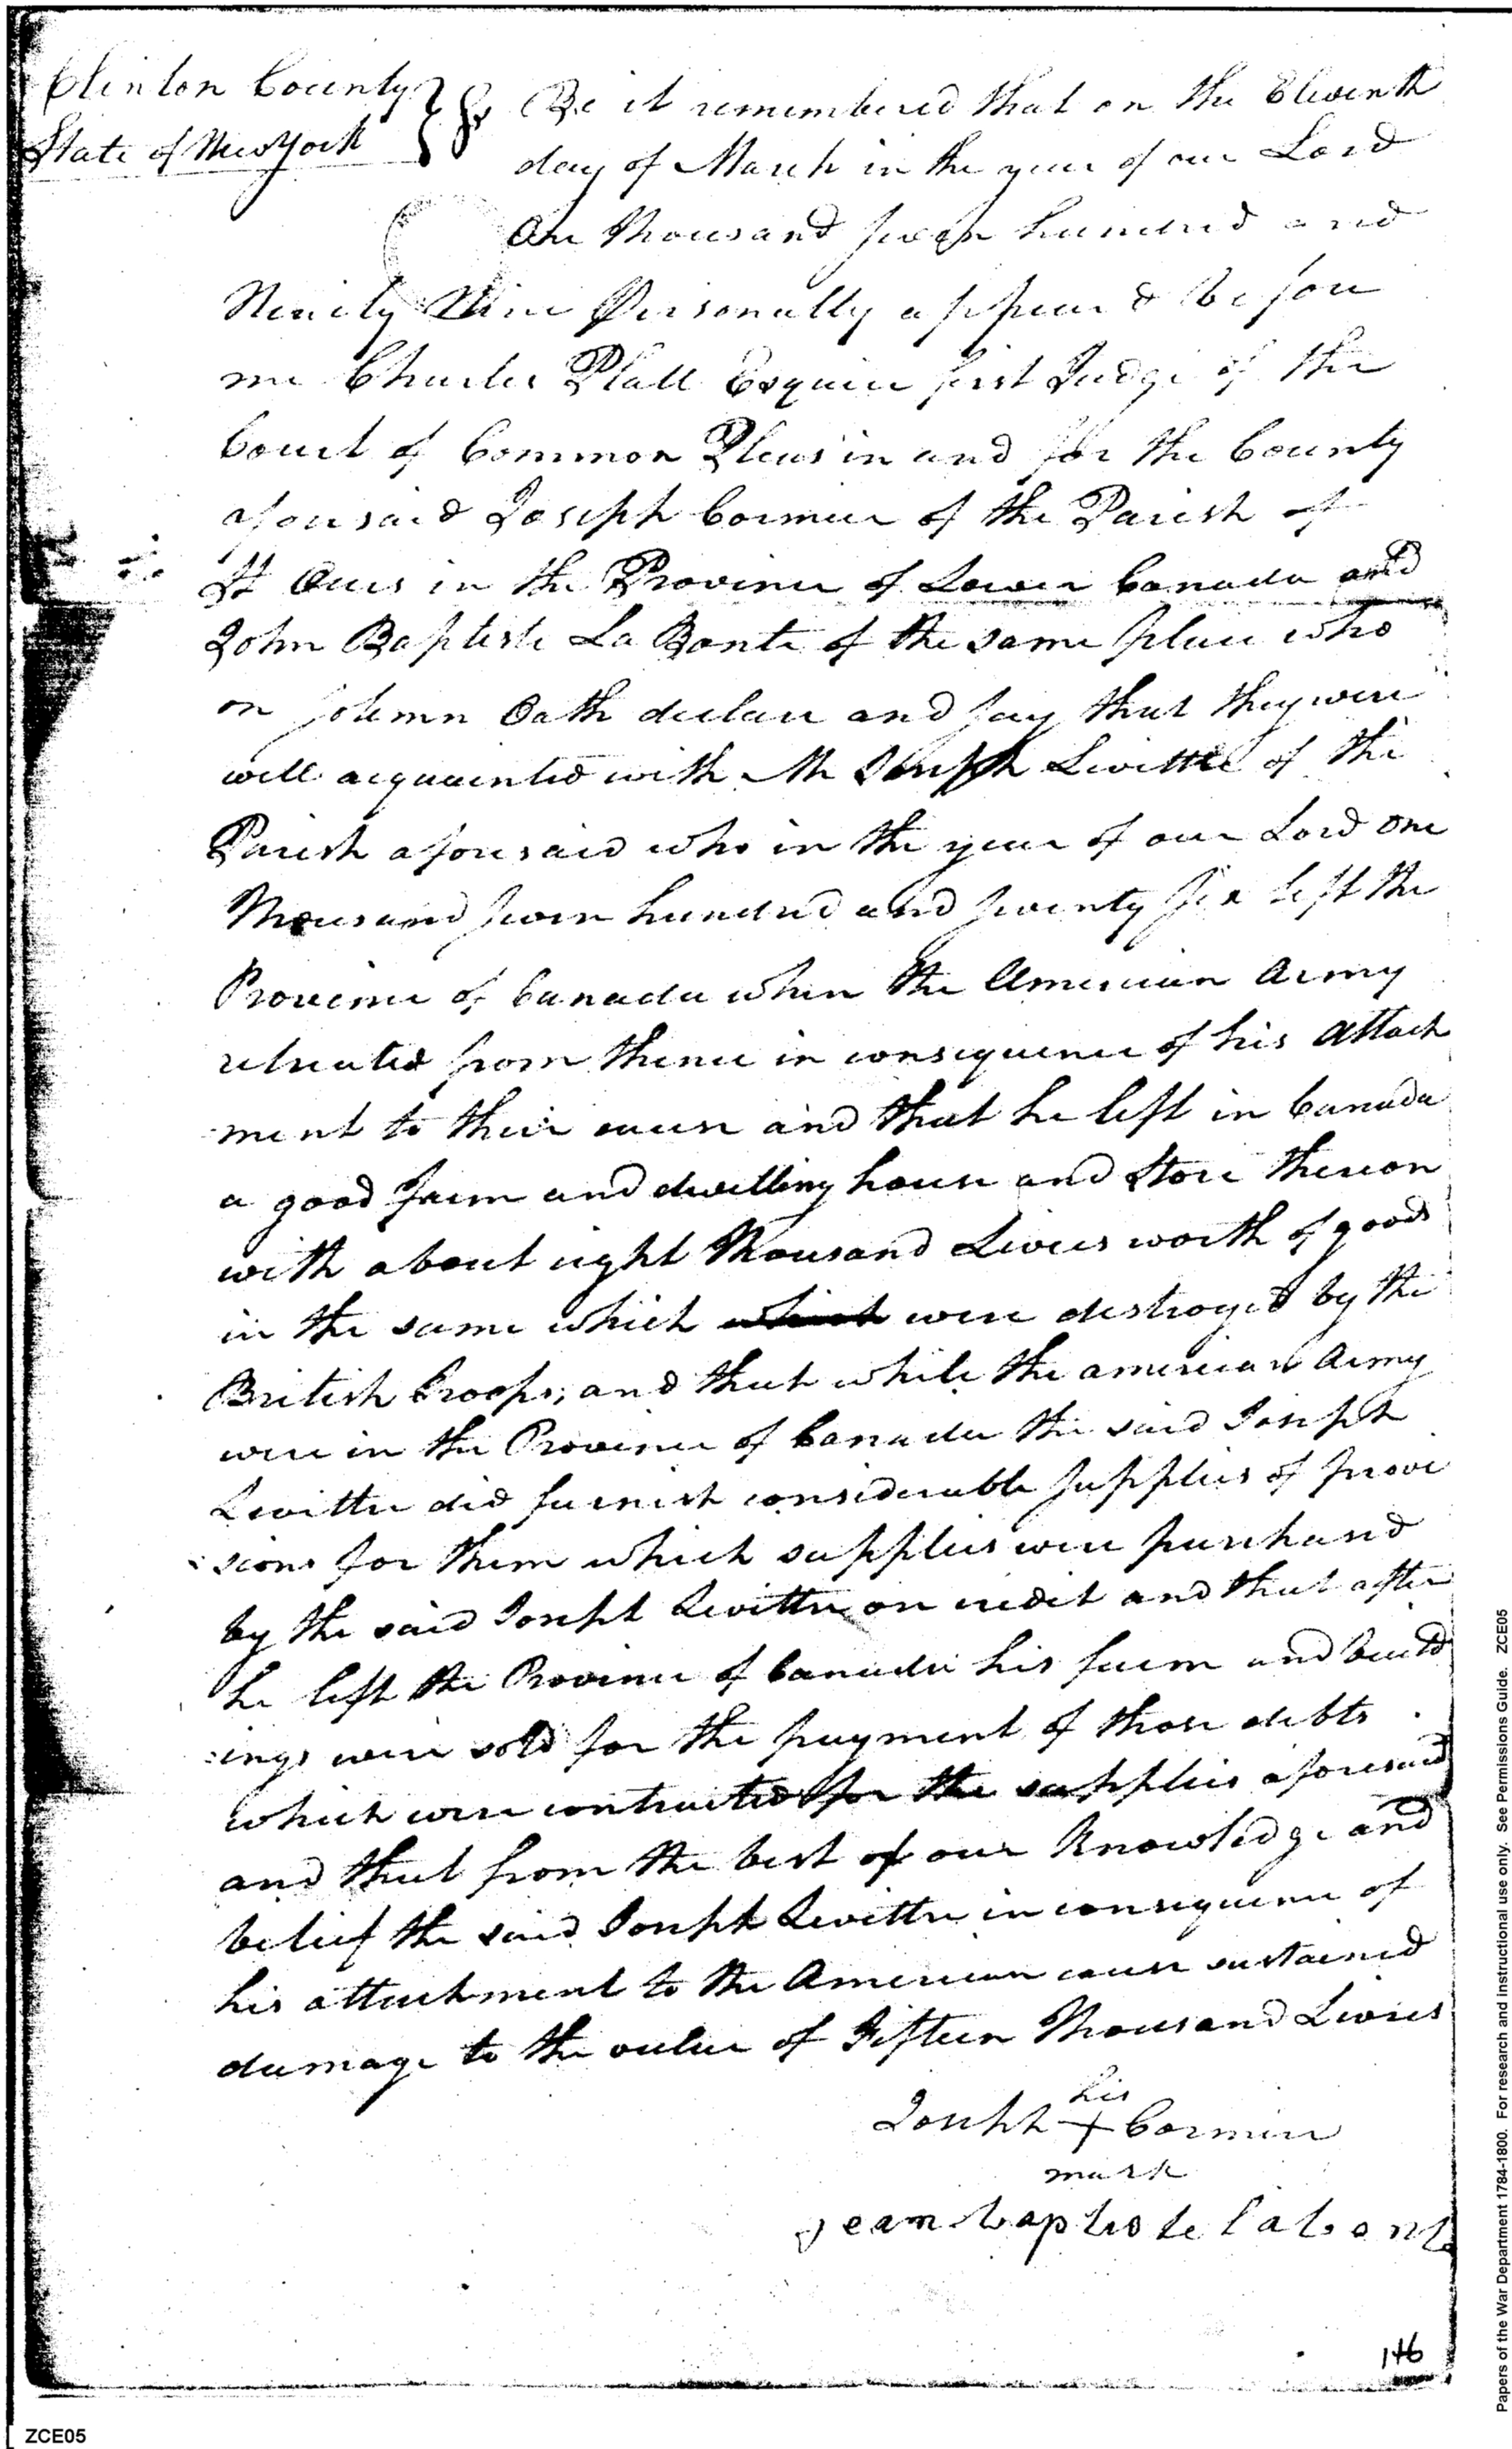 Clinton County } ss
State of New York
Be it remembered that on the Eleventh
day of March in the year of our Lord
One Thousand Seven hundred and
Ninety Nine Personally appeard before
me Charles Platt Esquire first Judge of the
Court of Common Pleas in and for the County
aforesaid Joseph Cormier of the Parish of
St Ours in the Province of Lower Canada and
John Baptiste La Bonte of the same place who
on solemn Oath declare and say that they were
well acquainted with Mr Joseph Levittre of the
Parish aforesaid who in the year of our Lord one
Thousand seven hundred and seventy six left the
Province of Canada when the American Army
retreated from thence in consequence of his attach
ment to their cause and that he left in Canada
a good farm and dwelling house and Store thereon
with about eight Thousand Livres worth of goods
in the same which which were destroyed by the
British troops; and that while the american Army
were in the Province of Canada the said Joseph
Levittre did furnish considerable supplies of provi
sions for them which supplies were purchased
by the said Joseph Levittre on credit and that after
he left the Province of Canada his farm and build
:ings were sold for the payment of those debts
which were contracted for the supplies aforesaid
and that from the best of our Knowledge and
belief the said Joseph Levittre in consequence of
his attachment to the American cause sustained
damage to the value of Fifteen Thousand Livres
his
Joseph + Cormier
mark
jean baptiste labont
146
ZCE05
Papers of the War Department 1784-1800. For research and instructional use only. See Permissions Guide. ZCE05